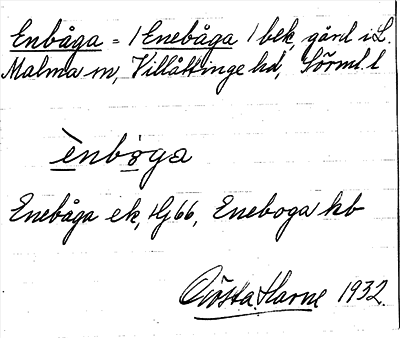 Enbåga = / Enebåga / bek, gård i L.
Malma sn, Villåttinge hd, Sörml. l
ènbøga
Enebåga ek, Hg 66, Eneboga kb
Gösta Harne 1932.